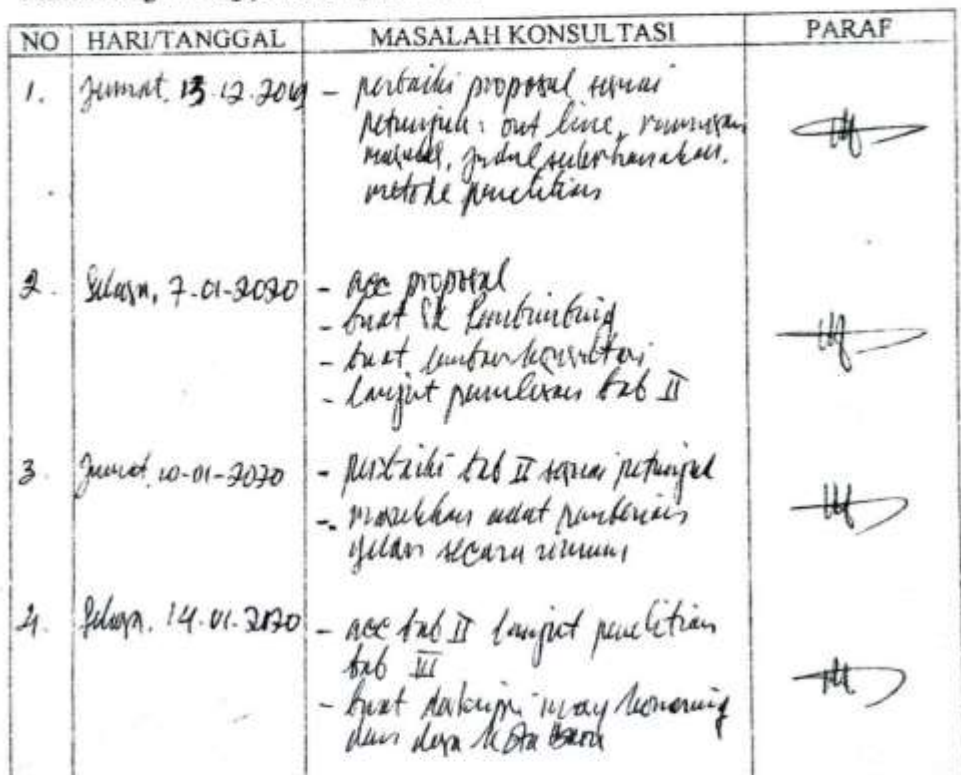 NO HARI/TANGGAL MASALAH KONSULTASI PARAF
1. Jumat, 13.12.2019 - perbaiki proposal sesuai
petunjuk: out line, rumusan
masalah, judul sederhanakan.
metode penelitian
2. Selasa, 7-01-2020 - acc proposal
- buat SK Pembimbing
- buat lembar konsultasi
- lanjut penulisan bab II
3. Jumat, 10-01-2020 - perbaiki bab II sesuai petunjuk
- masukkan adat pemberian
gelar secara umum
4. Selasa, 14-01-2020 - acc bab II lanjut penelitian
bab III
- buat deskripsi
dan desa Kota Baru